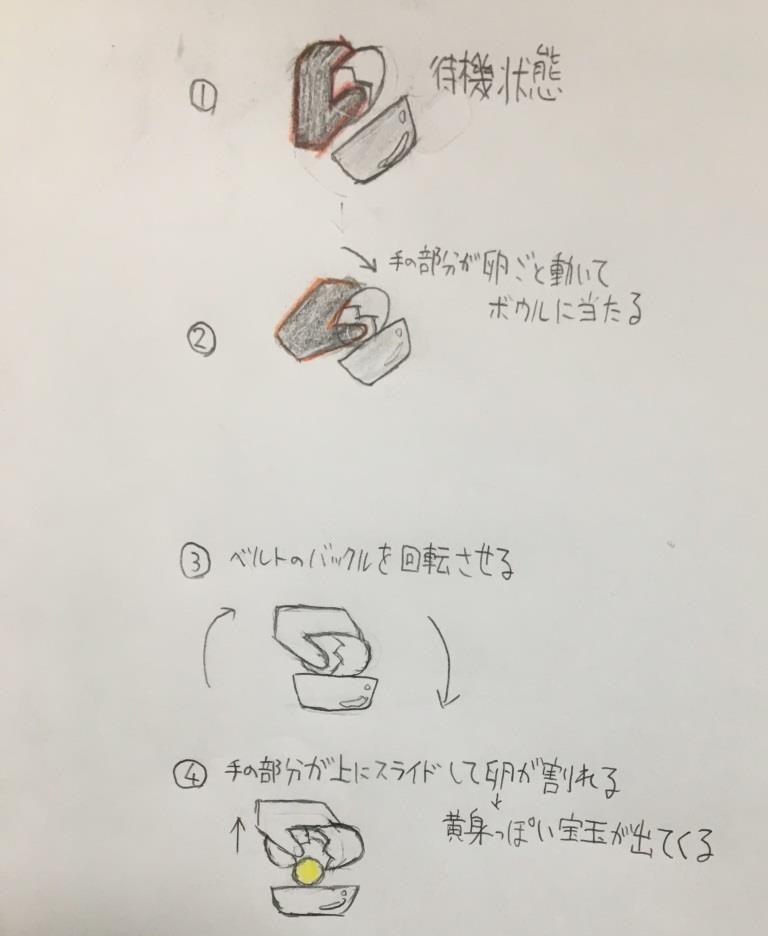 ① 待機状態
② 手の部分が卵ごと動いて
ボウルに当たる
③ ベルトのバックルを回転させる
④ 手の部分が上にスライドして卵が割れる
黄身っぽい宝玉が出てくる